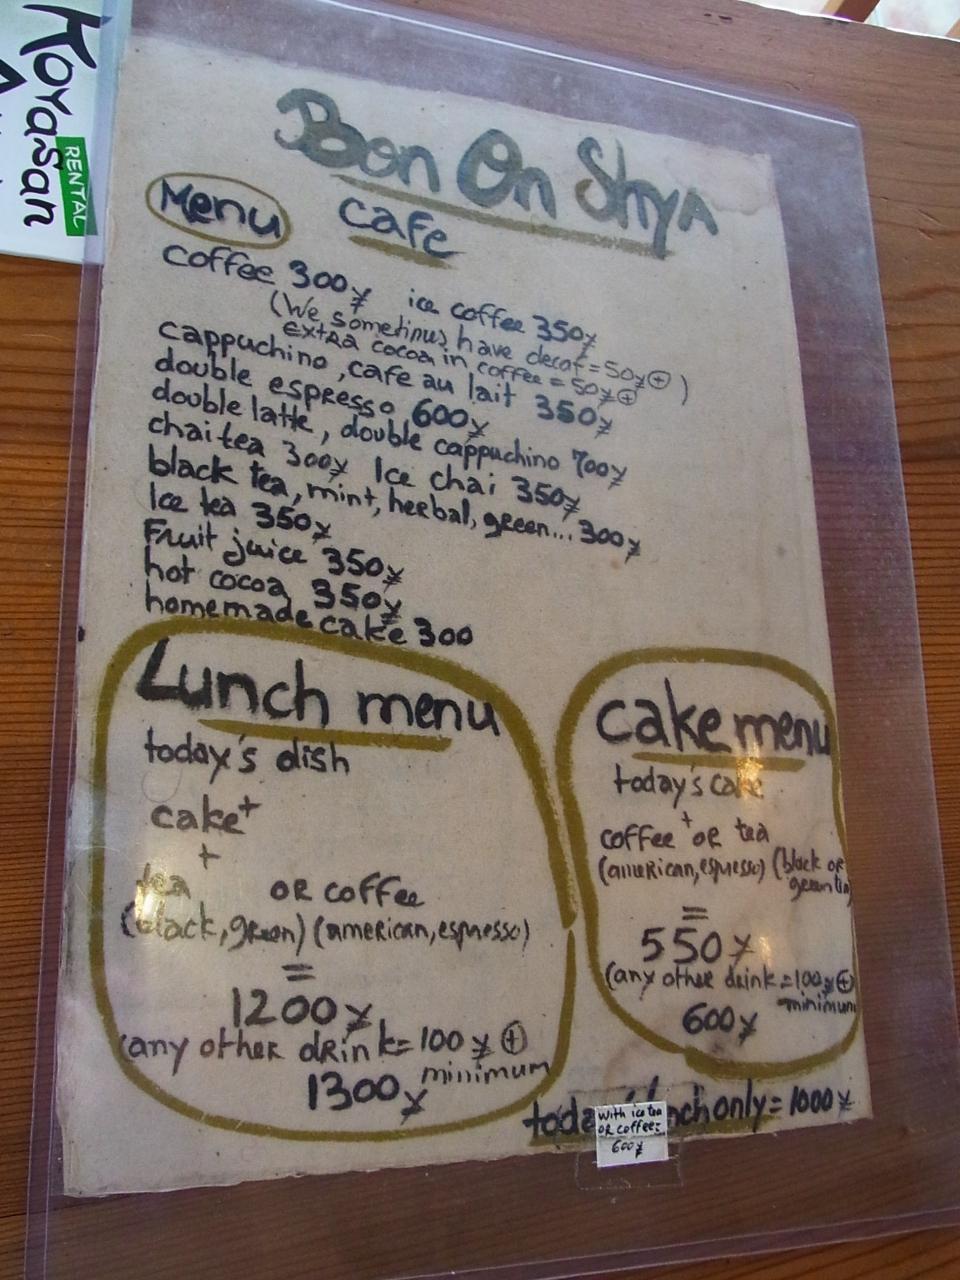 Koyasan
RENTAL
Bon On Shya
Menu cafe
coffee 300¥ ice coffee 350¥
(We sometimes have decaf = 50¥ ⊕)
extra cocoa in coffee = 50¥ ⊕
cappuchino, cafe au lait 350¥
double espresso 600¥
double latte, double cappuchino 700¥
chai tea 300¥ Ice chai 350¥
black tea, mint, herbal, green... 300¥
Ice tea 350¥
Fruit juice 350¥
hot cocoa 350¥
homemade cake 300
Lunch menu
today's dish
+
cake
+
tea OR coffee
(black, green) (american, espresso)
=
1200¥
(any other drink = 100¥ ⊕
minimum
1300¥
cake menu
today's cake
+
coffee or tea
(american, espresso) (black or
green tea
=
550¥
(any other drink = 100¥ ⊕
minimum
600¥
today's lunch only = 1000¥
with ice tea
or coffee =
600¥